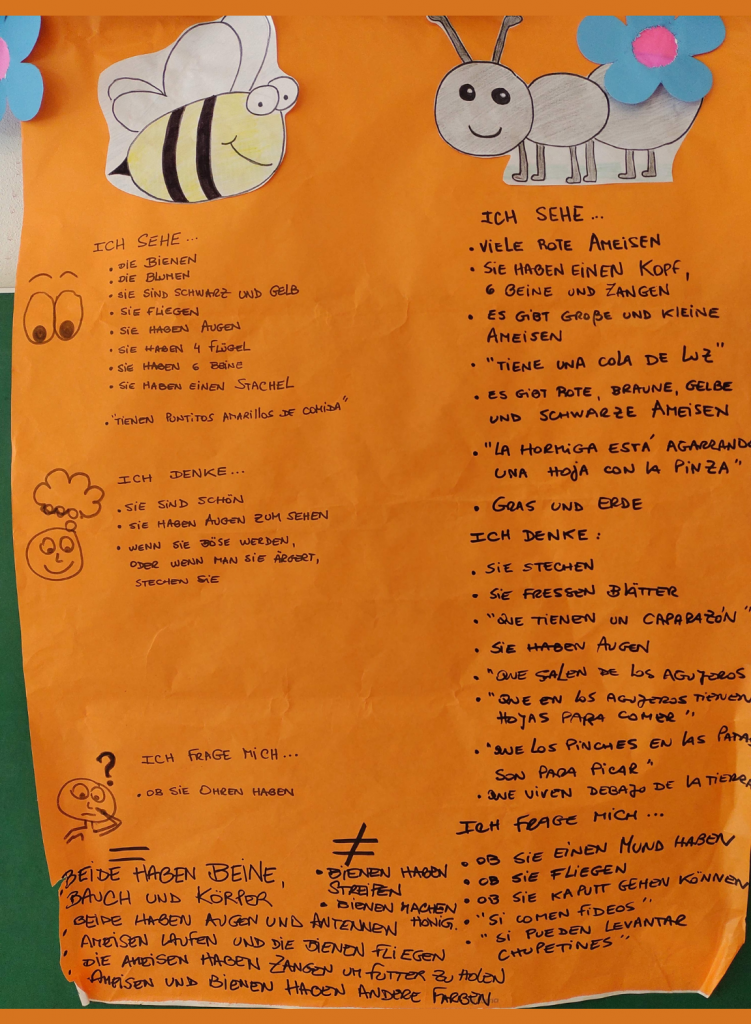 ICH SEHE...
• DIE BIENEN
• DIE BLUMEN
• SIE SIND SCHWARZ UND GELB
• SIE FLIEGEN
• SIE HABEN AUGEN
• SIE HABEN 4 FLÜGEL
• SIE HABEN 6 BEINE
• SIE HABEN EINEN STACHEL
• "TIENEN PUNTITOS AMARILLOS DE COMIDA"
ICH DENKE...
• SIE SIND SCHÖN
• SIE HABEN AUGEN ZUM SEHEN
• WENN SIE BÖSE WERDEN,
ODER WENN MAN SIE ÄRGERT,
STECHEN SIE
?
ICH FRAGE MICH...
• OB SIE OHREN HABEN
ICH SEHE...
• VIELE ROTE AMEISEN
• SIE HABEN EINEN KOPF,
6 BEINE UND ZANGEN
• ES GIBT GROßE UND KLEINE
AMEISEN
• "TIENE UNA COLA DE LUZ"
• ES GIBT ROTE, BRAUNE, GELBE
UND SCHWARZE AMEISEN
• "LA HORMIGA ESTÁ AGARRANDO
UNA HOJA CON LA PINZA"
• GRAS UND ERDE
ICH DENKE:
• SIE STECHEN
• SIE FRESSEN BLÄTTER
• "QUE TIENEN UN CAPARAZÓN"
• SIE HABEN AUGEN
• "QUE SALEN DE LOS AGUJEROS
• "QUE EN LOS AGUJEROS TIENEN
HOJAS PARA COMER"
• "QUE LOS PINCHES EN LAS PATAS
SON PARA PICAR"
• QUE VIVEN DEBAJO DE LA TIERRA
ICH FRAGE MICH...
• OB SIE EINEN MUND HABEN
• OB SIE FLIEGEN
• OB SIE KAPUTT GEHEN KÖNNEN
• "SI COMEN FIDEOS"
• "SI PUEDEN LEVANTAR
CHUPETINES"
=
• BEIDE HABEN BEINE,
BAUCH UND KÖRPER
• BEIDE HABEN AUGEN UND ANTENNEN
≠
• BIENEN HABEN
STREIFEN
• BIENEN MACHEN
HONIG.
• AMEISEN LAUFEN UND DIE BIENEN FLIEGEN
• DIE AMEISEN HABEN ZANGEN UM FUTTER ZU HOLEN
• AMEISEN UND BIENEN HABEN ANDERE FARBEN